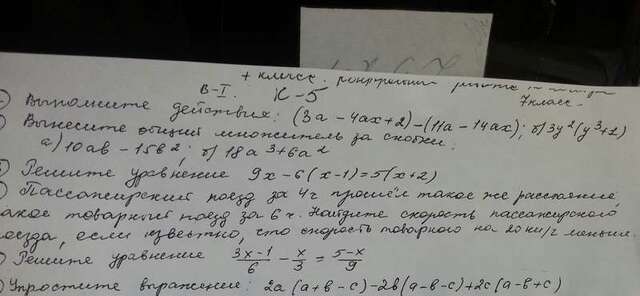 7 класс. контрольная работа
В-I. К-5 7 класс
Выполните действия: (3а - 4ах + 2) - (11а - 14ах); б) 3у²(у³+1)
Вынесите общий множитель за скобки:
а) 10ав - 15в²; б) 18а³ + 6а²
Решите уравнение 9х - 6(х-1) = 5(х+2)
Пассажирский поезд за 4ч прошёл такое же расстояние,
какое товарный поезд за 6 ч. Найдите скорость пассажирского
поезда, если известно, что скорость товарного на 20 км/ч меньше.
Решите уравнение (3х-1)/6 - х/3 = (5-х)/9
Упростите выражение: 2а(а+в-с) - 2в(а-в-с) + 2с(а-в+с)